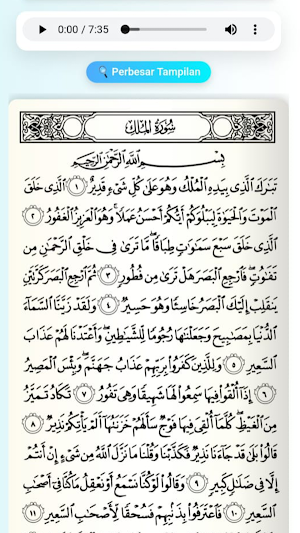 0:00 / 7:35
Perbesar Tampilan
سُورَةُ الْمُلْكِ
بِسْمِ اللَّهِ الرَّحْمَٰنِ الرَّحِيمِ
تَبَارَكَ الَّذِي بِيَدِهِ الْمُلْكُ وَهُوَ عَلَىٰ كُلِّ شَيْءٍ قَدِيرٌ ١ الَّذِي خَلَقَ
الْمَوْتَ وَالْحَيَاةَ لِيَبْلُوَكُمْ أَيُّكُمْ أَحْسَنُ عَمَلًا وَهُوَ الْعَزِيزُ الْغَفُورُ ٢
الَّذِي خَلَقَ سَبْعَ سَمَاوَاتٍ طِبَاقًا مَا تَرَىٰ فِي خَلْقِ الرَّحْمَٰنِ مِنْ
تَفَاوُتٍ فَارْجِعِ الْبَصَرَ هَلْ تَرَىٰ مِنْ فُطُورٍ ٣ ثُمَّ ارْجِعِ الْبَصَرَ كَرَّتَيْنِ
يَنْقَلِبْ إِلَيْكَ الْبَصَرُ خَاسِئًا وَهُوَ حَسِيرٌ ٤ وَلَقَدْ زَيَّنَّا السَّمَاءَ
الدُّنْيَا بِمَصَابِيحَ وَجَعَلْنَاهَا رُجُومًا لِلشَّيَاطِينِ وَأَعْتَدْنَا لَهُمْ عَذَابَ
السَّعِيرِ ٥ وَلِلَّذِينَ كَفَرُوا بِرَبِّهِمْ عَذَابُ جَهَنَّمَ وَبِئْسَ الْمَصِيرُ
٦ إِذَا أُلْقُوا فِيهَا سَمِعُوا لَهَا شَهِيقًا وَهِيَ تَفُورُ ٧ تَكَادُ تَمَيَّزُ
مِنَ الْغَيْظِ كُلَّمَا أُلْقِيَ فِيهَا فَوْجٌ سَأَلَهُمْ خَزَنَتُهَا أَلَمْ يَأْتِكُمْ نَذِيرٌ ٨
قَالُوا بَلَىٰ قَدْ جَاءَنَا نَذِيرٌ فَكَذَّبْنَا وَقُلْنَا مَا نَزَّلَ اللَّهُ مِنْ شَيْءٍ إِنْ أَنْتُمْ
إِلَّا فِي ضَلَالٍ كَبِيرٍ ٩ وَقَالُوا لَوْ كُنَّا نَسْمَعُ أَوْ نَعْقِلُ مَا كُنَّا فِي أَصْحَابِ
السَّعِيرِ ١٠ فَاعْتَرَفُوا بِذَنْبِهِمْ فَسُحْقًا لِأَصْحَابِ السَّعِيرِ ١١